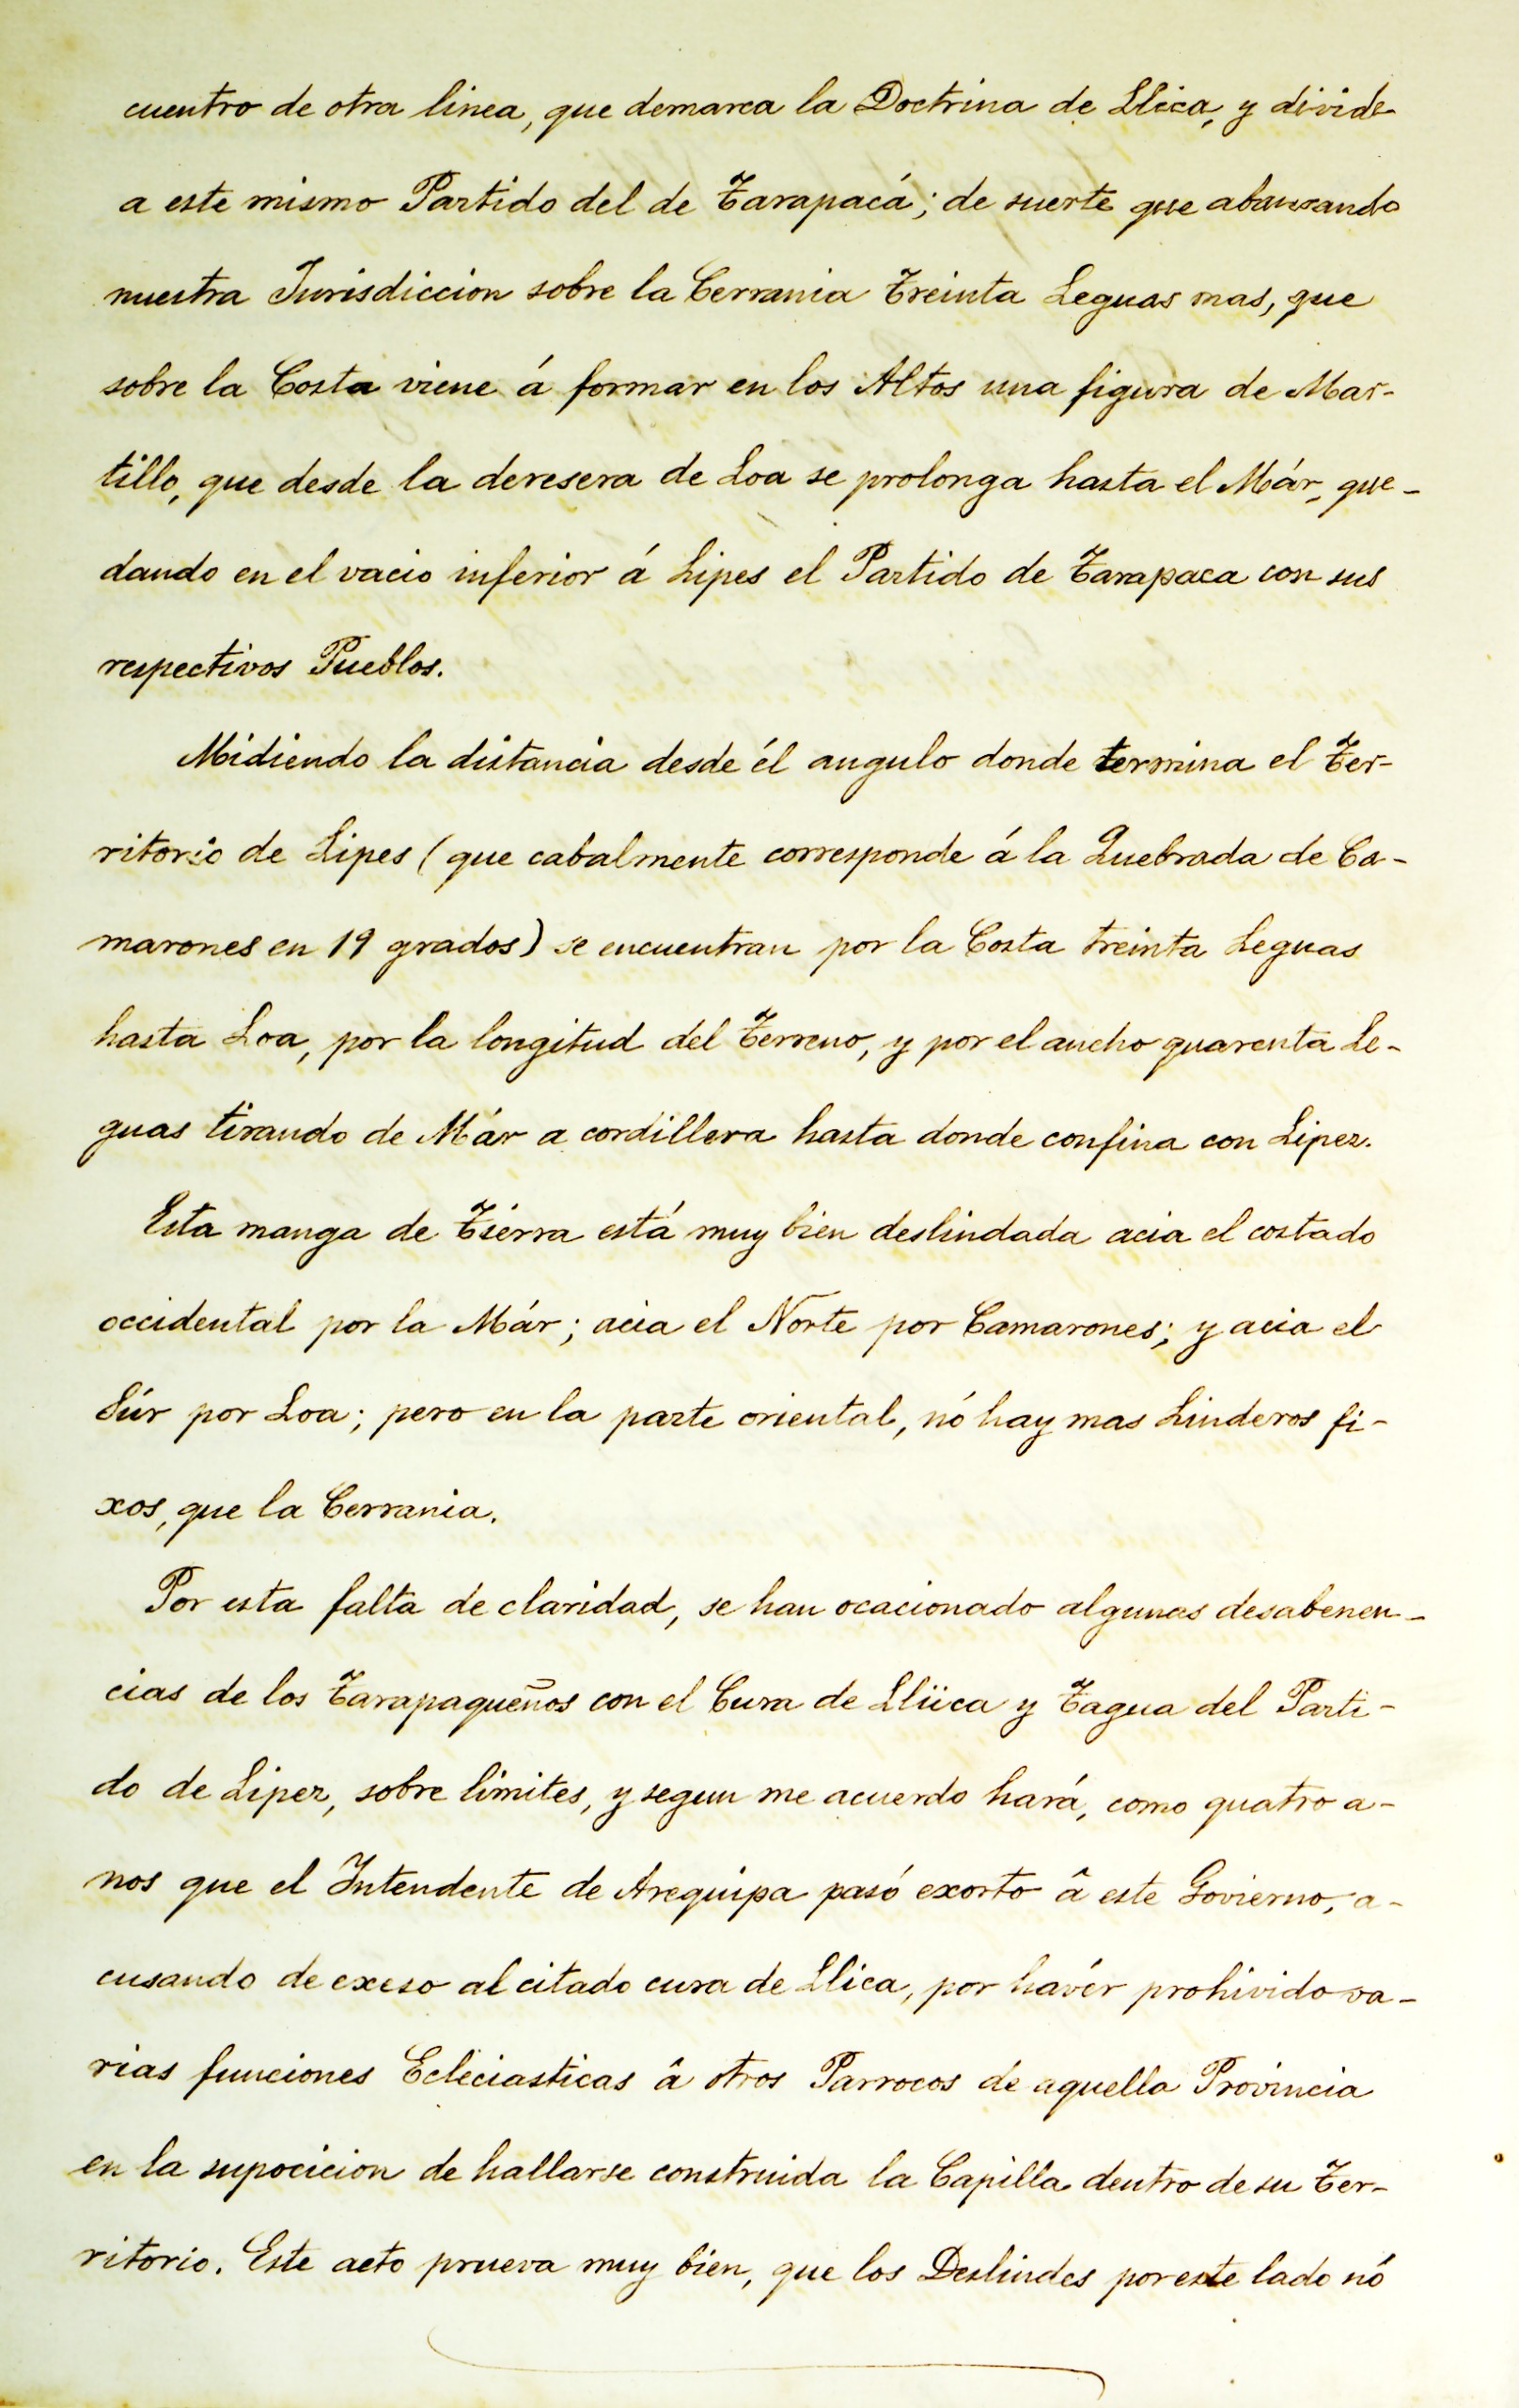 cuentro de otra linea, que demarca la Doctrina de Llica, y divide
a este mismo Partido del de Tarapacá; de suerte que abanzando
nuestra Jurisdiccion sobre la Cerrania Treinta Leguas mas, que
sobre la Costa viene á formar en los Altos una figura de Mar-
tillo, que desde la deresera de Loa se prolonga hasta el Már, que-
dando en el vacio inferior á Lipes el Partido de Tarapaca con sus
respectivos Pueblos.
Midiendo la distancia desde él angulo donde termina el Ter-
ritorio de Lipes (que cabalmente corresponde á la Quebrada de Ca-
marones en 19 grados) se encuentran por la Costa treinta Leguas
hasta Loa, por la longitud del Terreno, y por el ancho quarenta Le-
guas tirando de Már a cordillera hasta donde confina con Lipez.
Esta manga de Tierra está muy bien deslindada acia el costado
occidental por la Már; acia el Norte por Camarones; y acia el
Súr por Loa; pero en la parte oriental, nó hay mas Linderos fi-
xos, que la Cerrania.
Por esta falta de claridad, se han ocacionado algunas desabenen-
cias de los Tarapaqueños con el Cura de Llüca y Tagua del Parti-
do de Lipez, sobre limites, y segun me acuerdo hará, como quatro a-
nos que el Intendente de Arequipa pasó exorto â este Govierno, a-
cusando de exeso al citado cura de Llica, por havér prohivido va-
rias funciones Ecleciasticas â otros Parrocos de aquella Provincia
en la supocicion de hallarse construida la Capilla dentro de su Ter-
ritorio. Este acto prueva muy bien, que los Deslindes por este lado nó